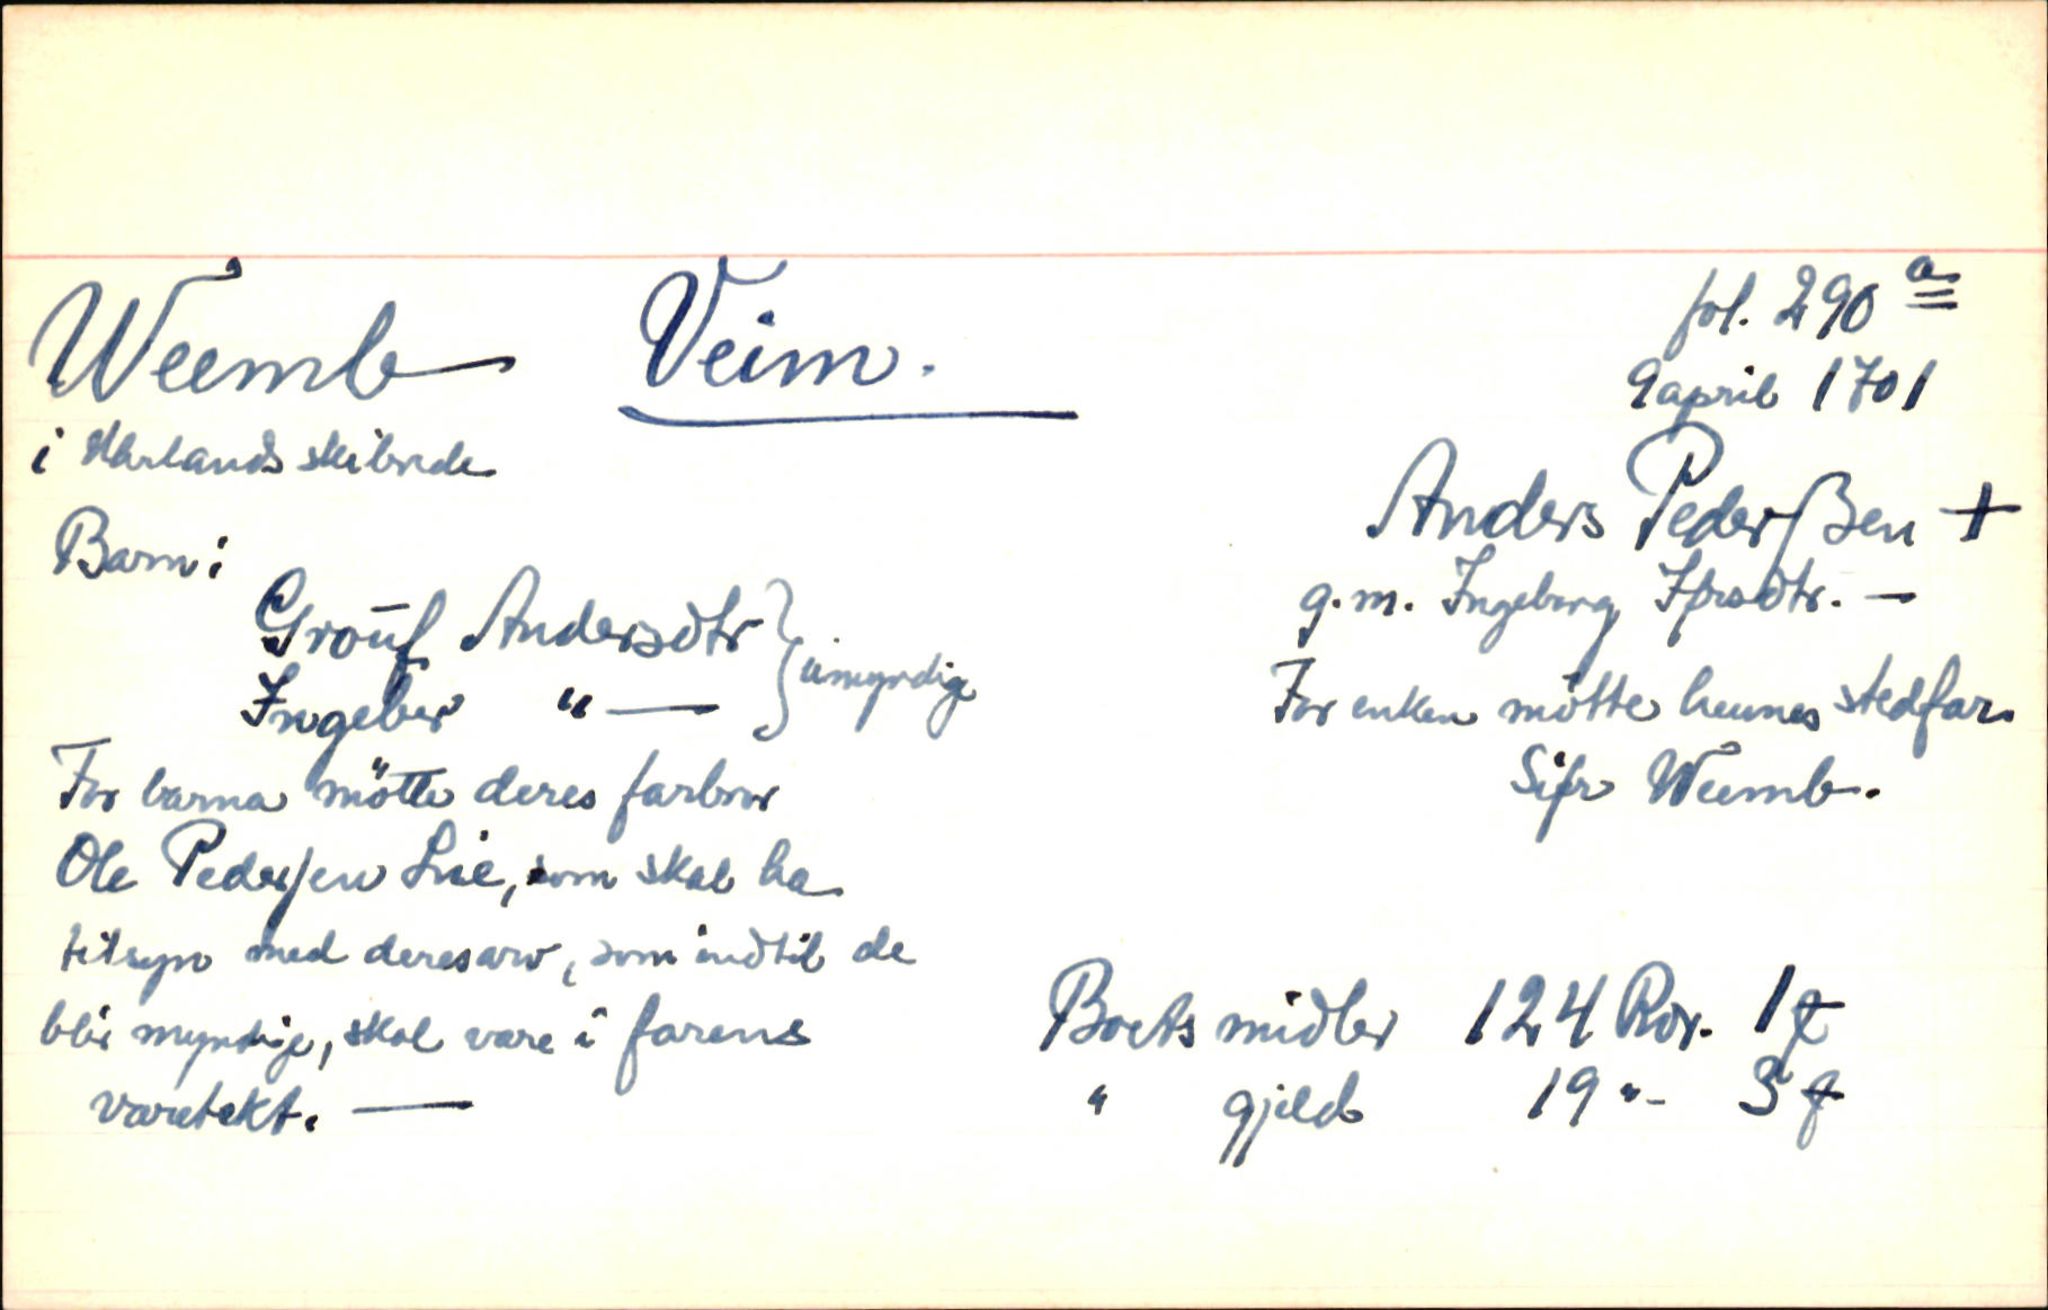 Weemb Veim.
fol. 290 a
9 april 1701
i Harlands skibrede
Anders Pederßen +
g.m. Ingeborg Ifrsdtr. —
For enken mötte hennes stedfar
Sifr Weemb.
Barn:
Groūf Andersdtr
Ingebor " —
umyndig
For barna mötte deres farbror
Ole Pedersen Lie, som skal ha
tilsyn med deres arv, som indtil de
blir myndige, skal være i farens
varetekt. —
Boets midler 124 Rdr. 1 ƶ
" gjeld 19 "- 3 ƶ